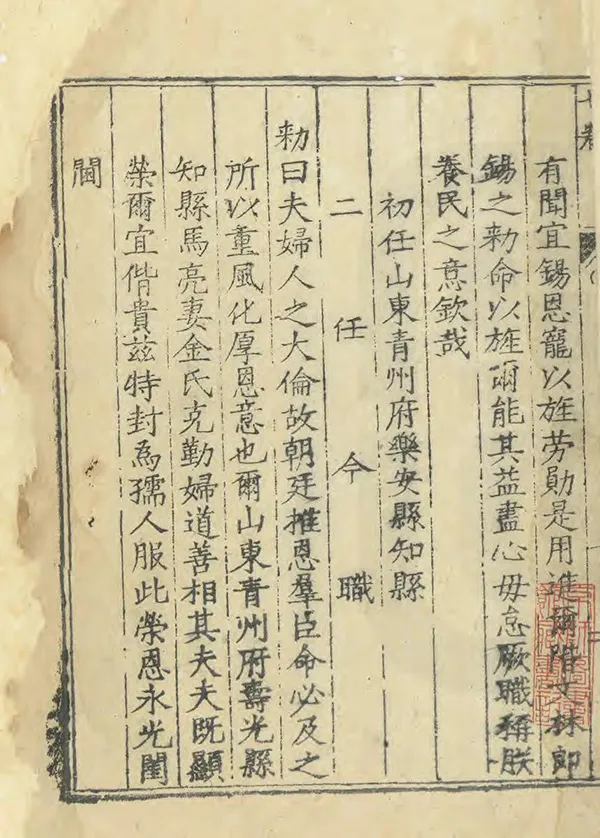 七卷
有聞宜錫恩寵以旌勞勛是用進爾階文林郎
錫之勑命以旌爾能其益盡心毋怠厥職稱朕
養民之意欽哉
初任山東青州府樂安縣知縣
二任今職
勑曰夫婦人之大倫故朝廷推恩羣臣命必及之
所以重風化厚恩意也爾山東青州府壽光縣
知縣馬亮妻金氏克勤婦道善相其夫夫既顯
榮爾宜偕貴茲特封為孺人服此榮恩永光閨
閫